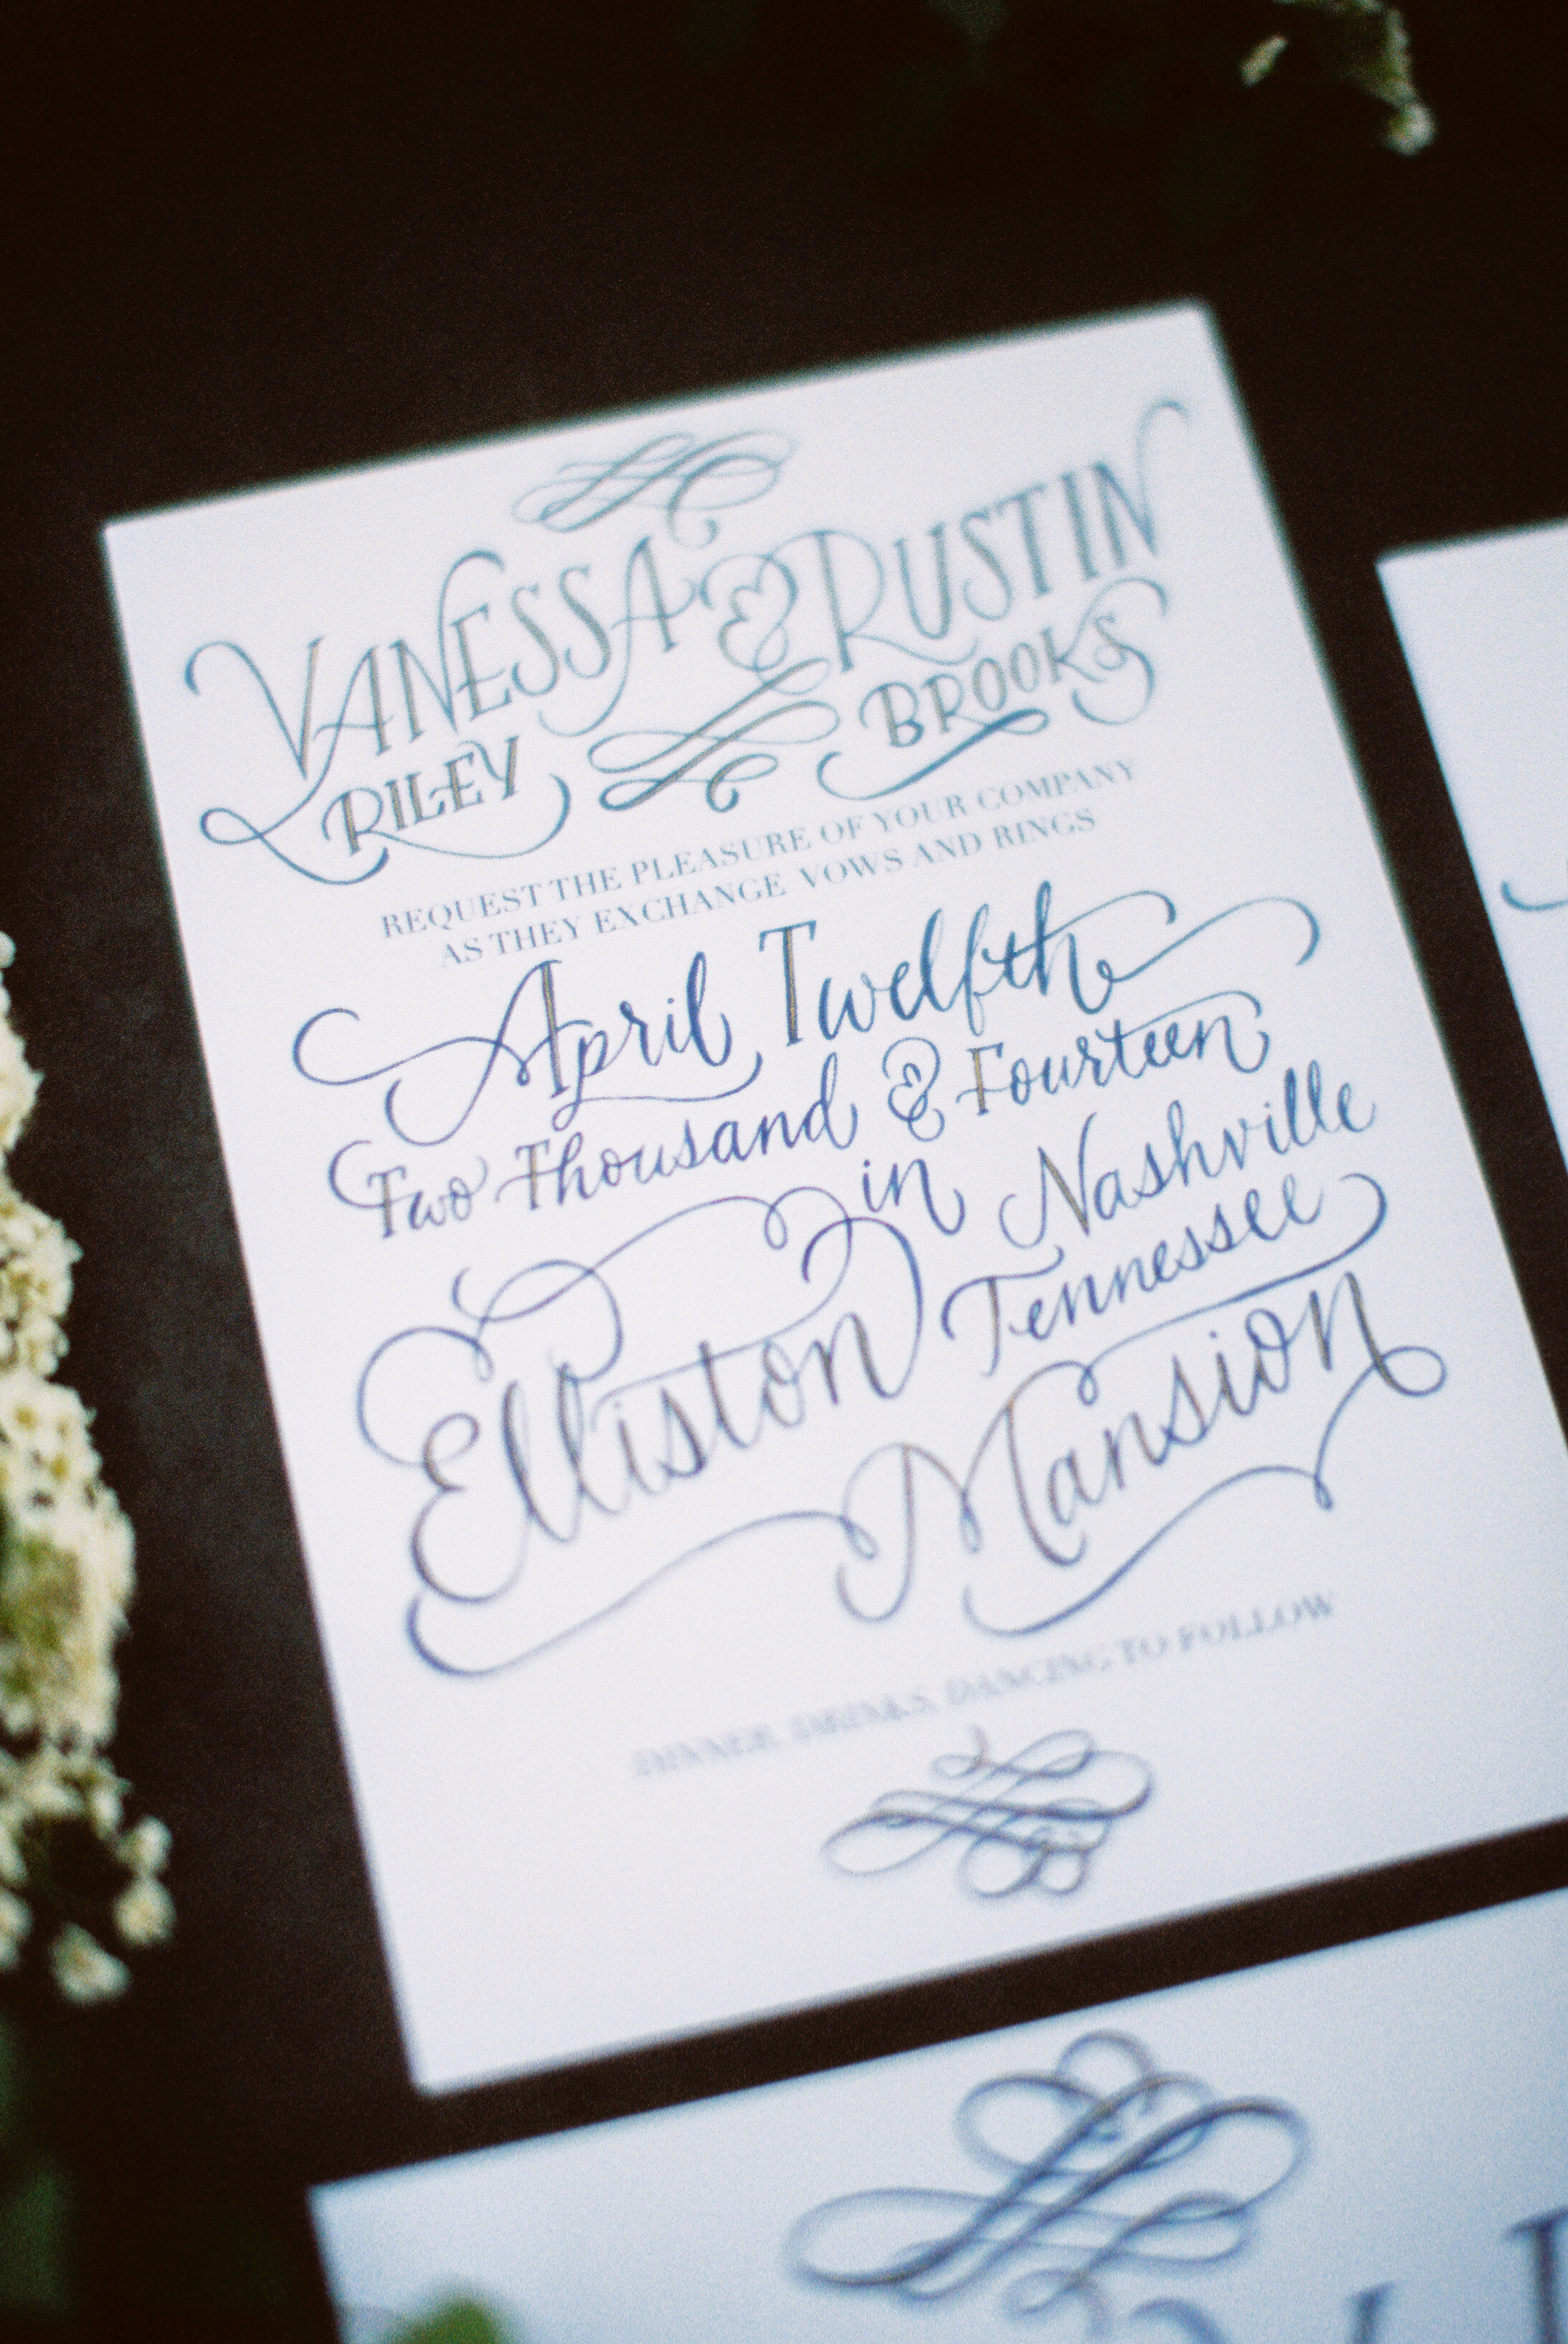 VANESSA & RUSTIN
RILEY BROOKS
REQUEST THE PLEASURE OF YOUR COMPANY
AS THEY EXCHANGE VOWS AND RINGS
April Twelfth
Two Thousand & Fourteen
in Nashville
Tennessee
Elliston
Mansion
DINNER, DRINKS, DANCING TO FOLLOW